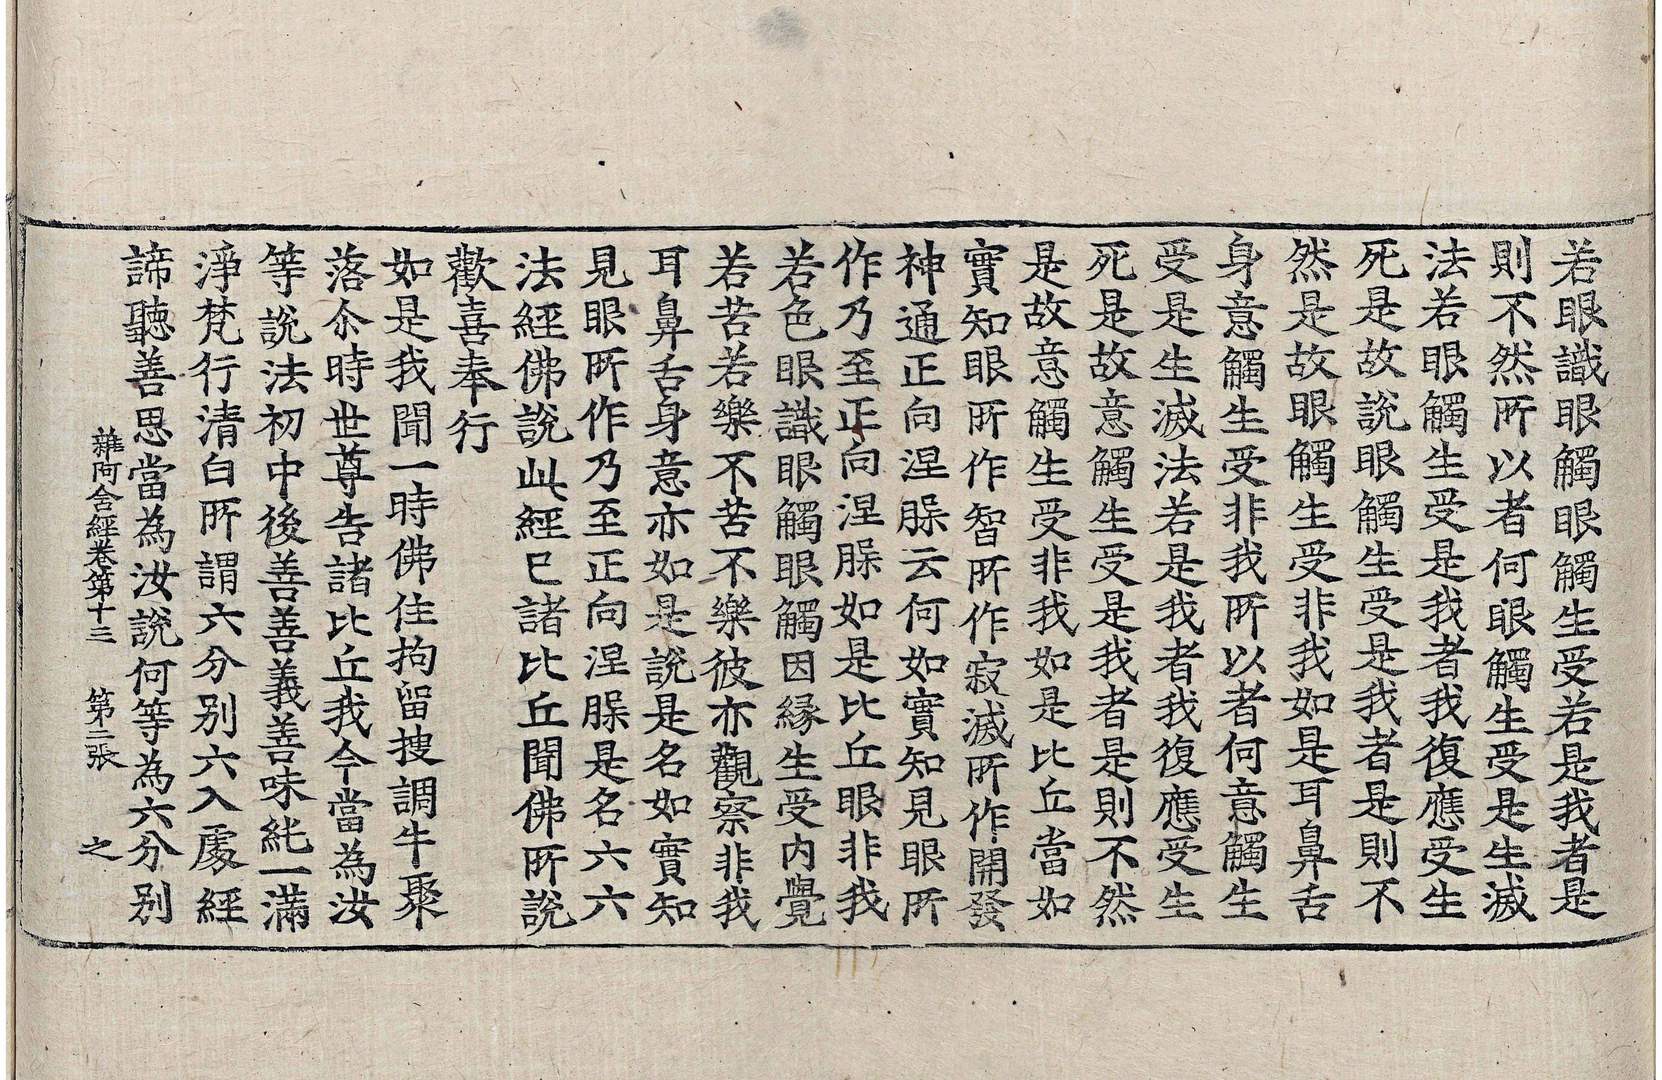 若眼識眼觸眼觸生受若是我者是
則不然所以者何眼觸生受是生滅
法若眼觸生受是我者我復應受生
死是故說眼觸生受是我者是則不
然是故眼觸生受非我如是耳鼻舌
身意觸生受非我所以者何意觸生
受是生滅法若是我者我復應受生
死是故意觸生受是我者是則不然
是故意觸生受非我如是比丘當如
實知眼所作智所作寂滅所作開發
神通正向涅槃云何如實知見眼所
作乃至正向涅槃如是比丘眼非我
若色眼識眼觸眼觸因緣生受內覺
若苦若樂不苦不樂彼亦觀察非我
耳鼻舌身意亦如是說是名如實知
見眼所作乃至正向涅槃是名六六
法經佛說此經已諸比丘聞佛所說
歡喜奉行
如是我聞一時佛住拘留搜調牛聚
落尒時世尊告諸比丘我今當為汝
等說法初中後善善義善味純一滿
淨梵行清白所謂六分別六入處經
諦聽善思當為汝說何等為六分別
雜阿含經卷第十三 第二張 之